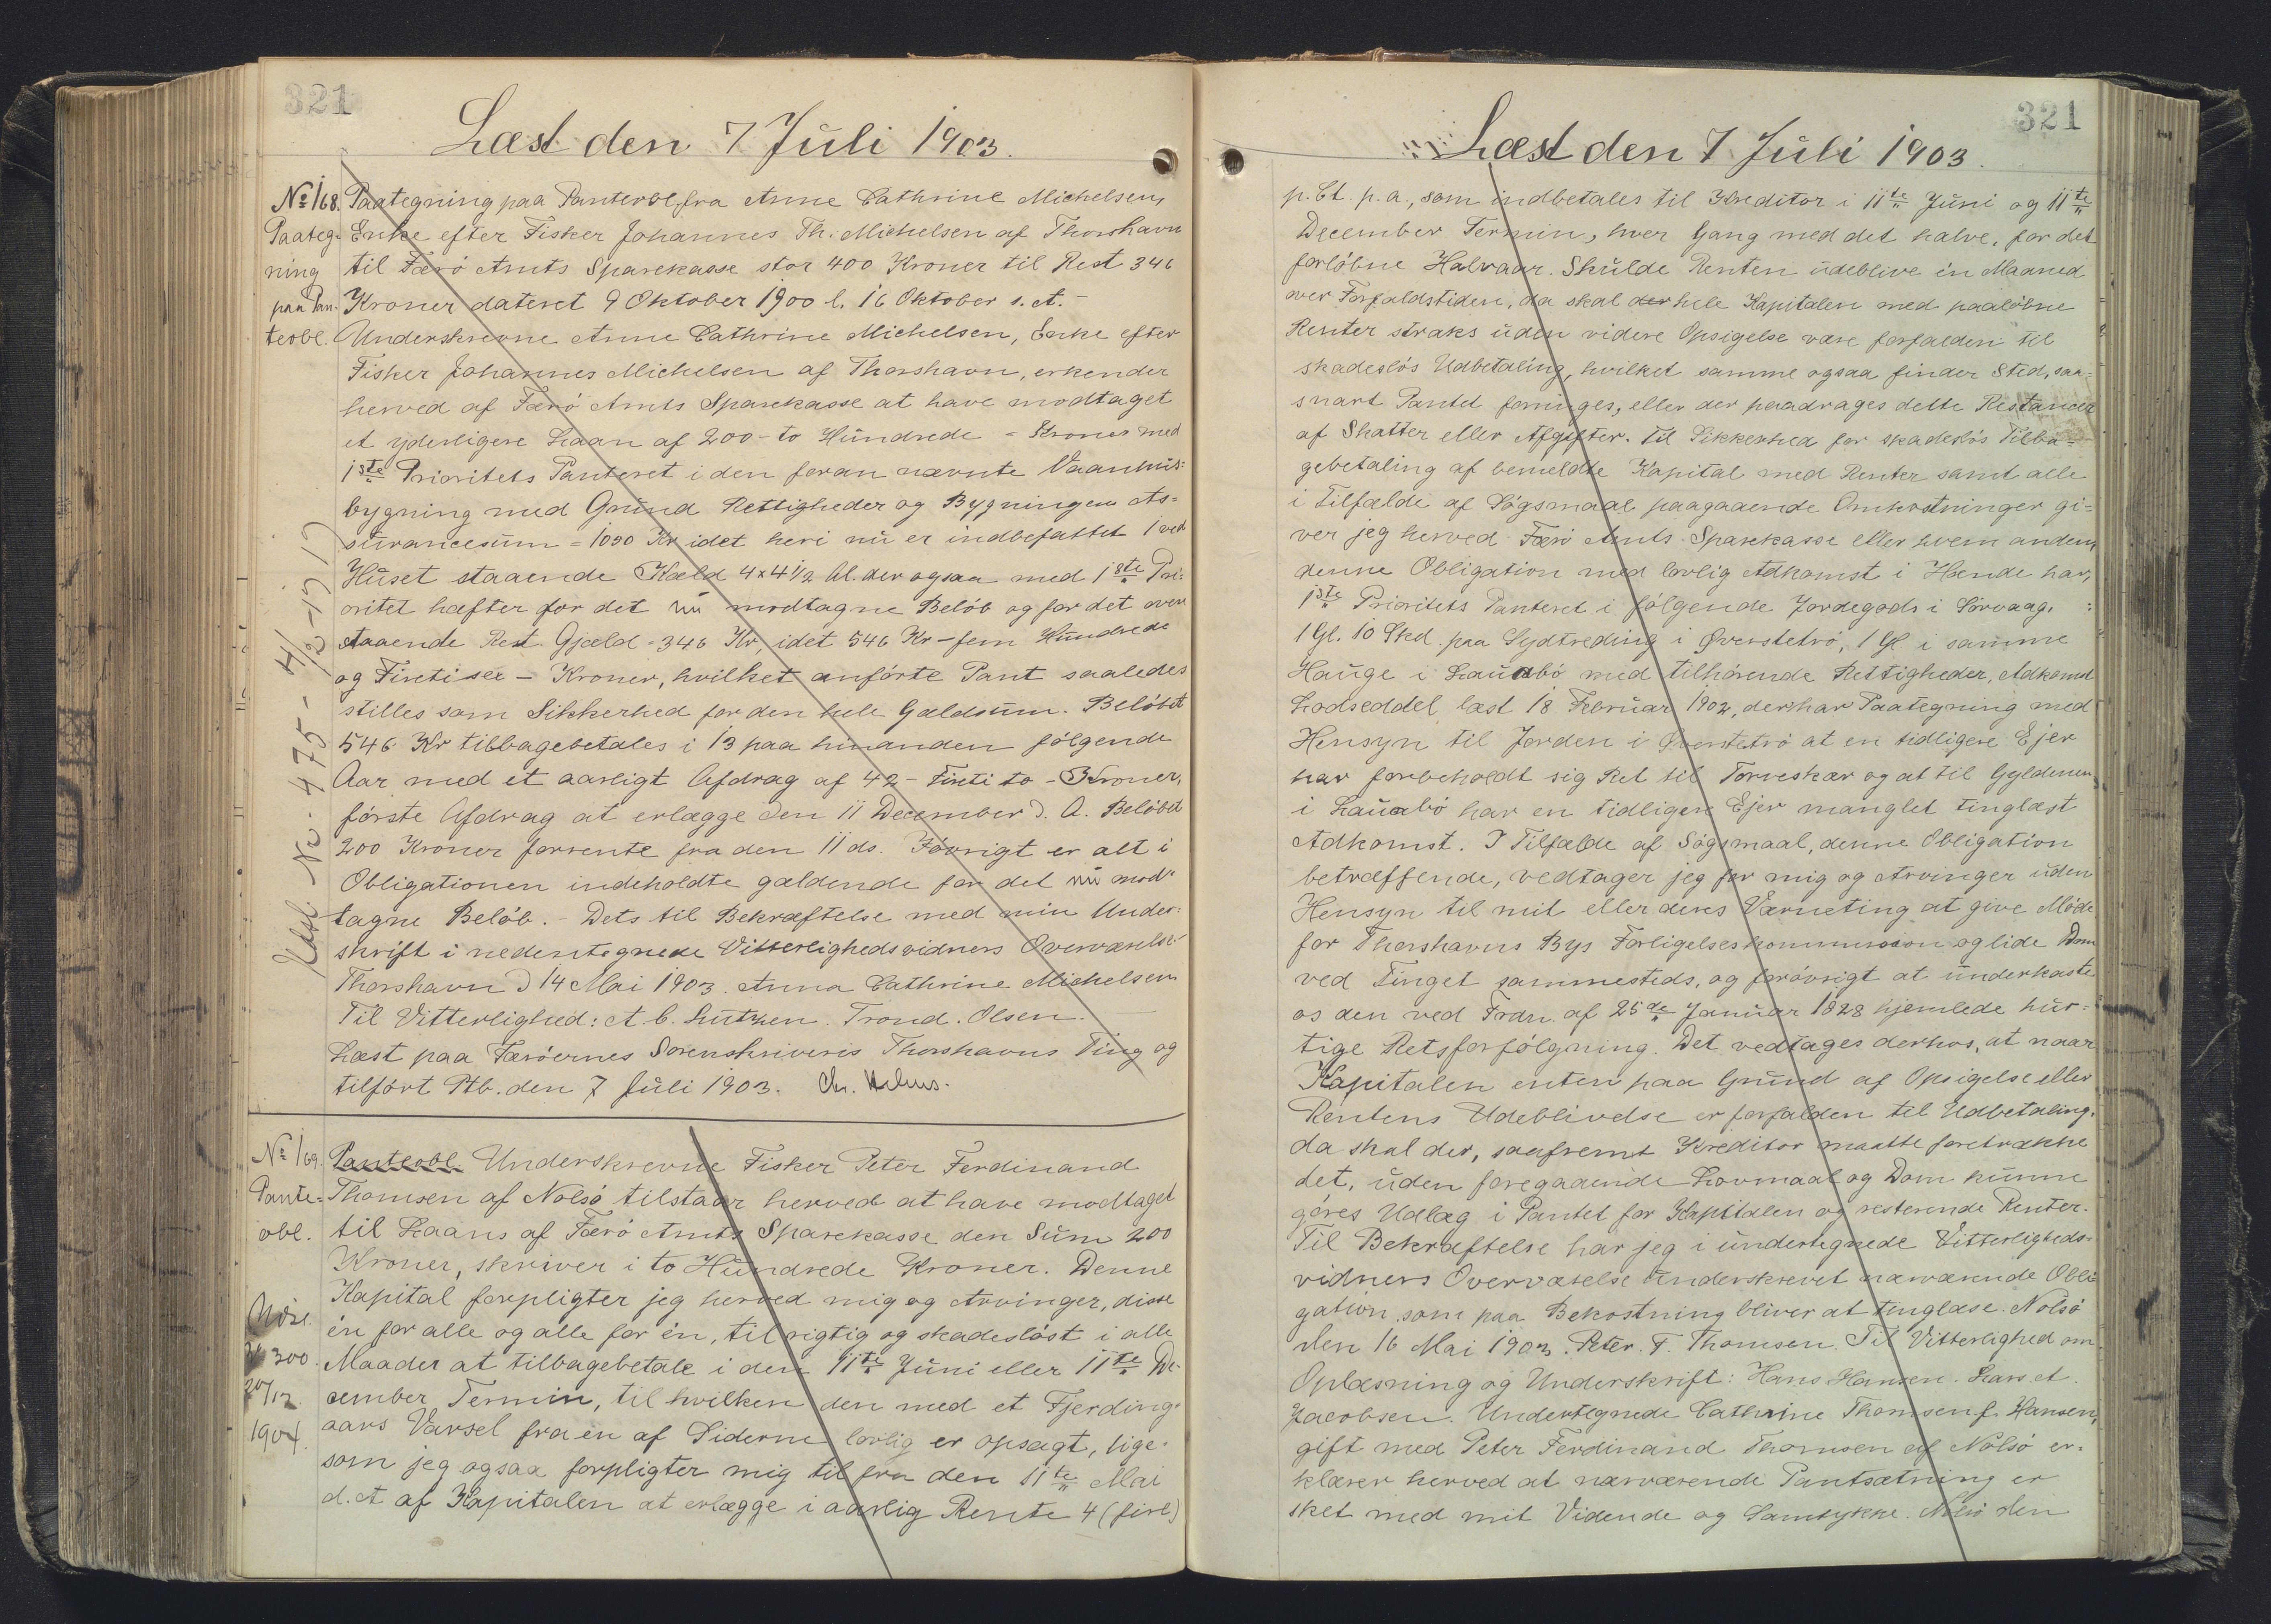 321
Læst den 7 Juli 1903.
No 168.
Paateg-
ning
paa Pan-
teobl.
Paategning paa Panteobl. fra Anne Cathrine Michelsen,
Enke efter Fisker Johannes Th. Michelsen af Thorshavn
til Færö Amts Sparekasse stor 400 Kroner til Rest 346
Kroner dateret 9 Oktober 1900 l. 16 Oktober s. A. -
Underskrevne Anne Cathrine Michelsen, Enke efter
Fisker Johannes Michelsen af Thorshavn, erkender
herved af Færö Amts Sparekasse at have modtaget
et yderligere Laan af 200 - to Hundrede - Kroner med
1ste Prioritets Panteret i den foran nævnte Vaanhus-
bygning med Grund Rettigheder og Bygningens As-
surancesum = 1000 Kr idet heri nu er indbefattet 1 ved
Huset staaende Kæld 4 x 4 1/2 Al. der ogsaa med 1ste Pri-
oritet hæfter for det nu modtagne Belöb og for det oven
staaende Rest Gjæld = 346 Kr, idet 546 Kr - fem Hundrede
og Firetisex - Kroner, hvilket anförte Pant saaledes
stilles som Sikkerhed for den hele Gældsum. Belöbet
546 Kr tilbagebetales i 13 paa hinanden fölgende
Aar med et aarligt Afdrag af 42 - Firti to - Kroner,
förste Afdrag at erlægge den 11 December d. A. Belöbet
200 Kroner forrente fra den 11 ds. Iövrigt er alt i
Obligationen indeholdte gældende for det nu mod-
tagne Belöb. - Dets til Bekræftelse med min Under-
skrift i nedentegnede Vitterlighedsvidners Overværelse
Thorshavn d 14 Mai 1903. Anna Cathrine Michelsen
Til Vitterlighed: A. C. Lützen. Trond. Olsen.
Læst paa Færöernes Sorenskriveris Thorshavns Ting og
tilfört Ptb. den 7 Juli 1903.
No 169.
Pante-
obl.
300.
20/12
1904
Panteobl. Underskrevne Fisker Peter Ferdinand
Thomsen af Nolsö tilstaar herved at have modtaget
til Laans af Færö Amts Sparekasse den Sum 200
Kroner, skriver i to Hundrede Kroner. Denne
Kapital forpligter jeg herved mig og Arvinger, disse
én for alle og alle for én, til rigtig og skadeslöst i alle
Maader at tilbagebetale i den 11te Juni eller 11te De-
cember Termin, til hvilken den med et Fjerding-
aars Varsel fra en af Siderne lovlig er opsagt, lige-
som jeg ogsaa forpligter mig til fra den 11te Mai
d. A af Kapitalen at erlægge i aarlig Rente 4 (fire)
321
Læst den 7 Juli 1903.
p. Ct. p. a., som indbetales til Kreditor i 11te Juni og 11te
December Termin, hver Gang med det halve, for det
forlöbne Halvaar. Skulde Renten udeblive én Maaned
over Forfaldstiden, da skal der hele Kapitalen med paalöbne
Renter straks uden videre Opsigelse være forfalden til
skadeslös Udbetaling, hvilket samme ogsaa finder Sted, saa-
snart Pantet forringes, eller der paadrages dette Restancer
af Skatter eller Afgifter. Til Sikkerhed for skadeslös Tilba-
gebetaling af bemeldte Kapital med Renter samt alle
i Tilfælde af Sögsmaal paagaaende Omkostninger gi-
ver jeg herved Færö Amts Sparekasse eller hvem anden,
denne Obligation med lovlig Adkomst i Hænde har,
1ste Prioritets Panteret i fölgende Jordegods i Sörvaag:
1 Gl. 10 Skd. paa Sydtreding i Øverstetrö, 1 Gl i samme
Hauge i Lauabö med tilhörende Rettigheder, Adkomst
Lodseddel læst 18 Februar 1902, der har Paategning med
Hensyn til Jorden i Øverstetrö at en tidligere Ejer
har forbeholdt sig Ret til Torveskær og at til Gylden
i Lauabö har en tidligere Ejer manglet tinglæst
Adkomst. I Tilfælde af Sögsmaal, denne Obligation
betræffende, vedtager jeg for mig og Arvinger uden
Hensyn til mit eller deres Værneting at give Möde
for Thorshavns Bys Forligelseskommission og lide Dom
ved Tinget sammesteds, og foröovrigt at underkaste
os den ved Frdn. af 25de Januar 1828 hjemlede hur-
tige Retsforfölgning. Det vedtages derhos, at naar
Kapitalen enten paa Grund af Opsigelse eller
Rentens Udeblivelse er forfalden til Udbetaling,
da skal der, saafremt Kreditor maatte foretrække
det, uden foregaaende Lovmaal og Dom kunne
göres Udlæg i Pantet for Kapitalen og resterende Renter.
Til Bekræftelse har jeg i undertegnede Vitterligheds-
vidners Overværelse underskrevet nærværende Obli-
gation som paa Bekostning bliver at tinglæse. Nolsö
den 16 Mai 1903. Peter. F. Thomsen. Til Vitterlighed om
Oplæsning og Underskrift: Hans Hansen. Lars. A.
Jacobsen. Undertegnede Cathrine Thomsen f. Hansen,
gift med Peter Ferdinand Thomsen af Nolsö er-
klærer herved at nærværende Pantsætning er
sket med mit Vidende og Samtykke. Nolsö den